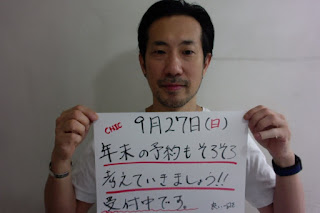 CHIC 9月27日(日)
年末の予約もそろそろ
考えていきましょう!!
受付中です。